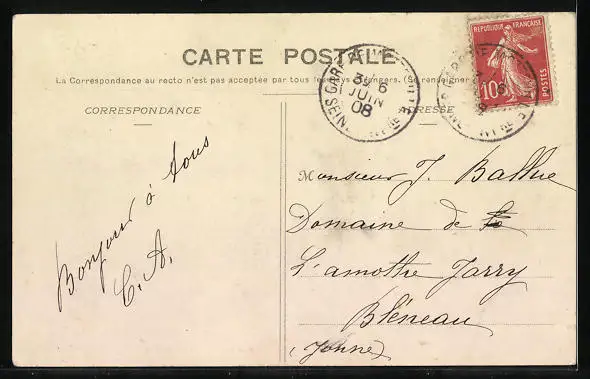 CARTE POSTALE
La Correspondance au recto n'est pas acceptée par tous les pays étrangers. (Se renseigner
CORRESPONDANCE
ADRESSE
RÉPUBLIQUE FRANÇAISE
10
POSTES
6
JUIN
08
SEINE
Bonjour à tous
C. A.
Monsieur J. Ballue
Domaine de
L'amothe Jarry
Bléneau
(Yonne)